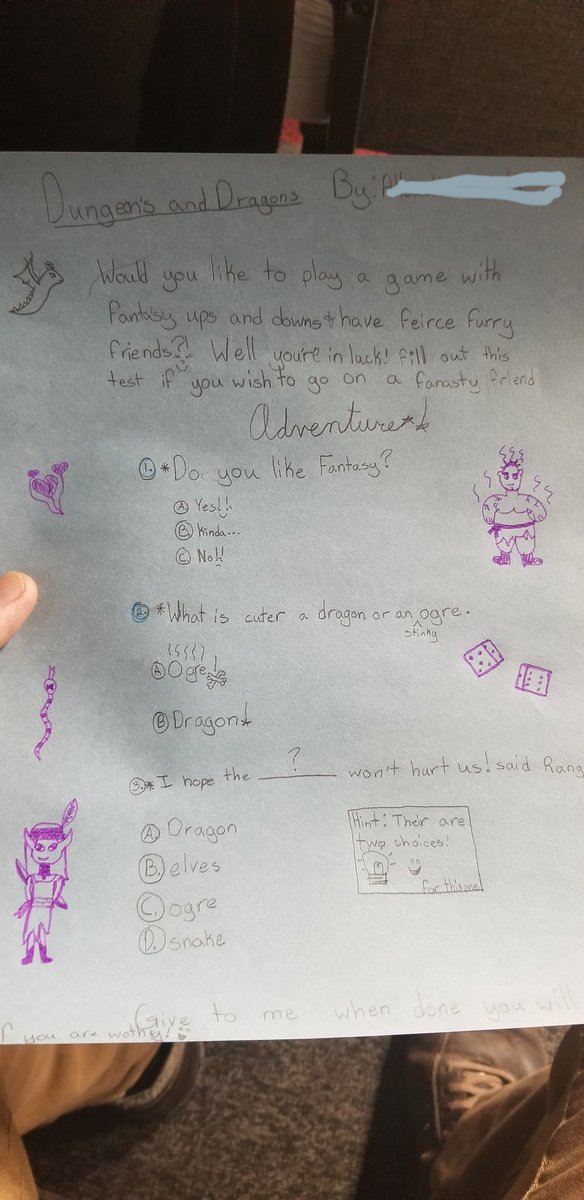 Dungeon's and Dragons By:
Would you like to play a game with
fantasy ups and downs + have feirce furry
friends?! Well you're in luck! fill out this
test if you wish to go on a fanasty friend
Adventure
1. *Do you like Fantasy?
A Yes!!
B Kinda...
C No!!
2. *What is cuter a dragon or an ogre.
stinky
A Ogre!
B Dragon!
3.* I hope the ___?___ won't hurt us! said Rang
Hint: Their are
two choices!
for this one
A. Dragon
B. elves
C. ogre
D. snake
Give to me when done you will
f you are wothy!!